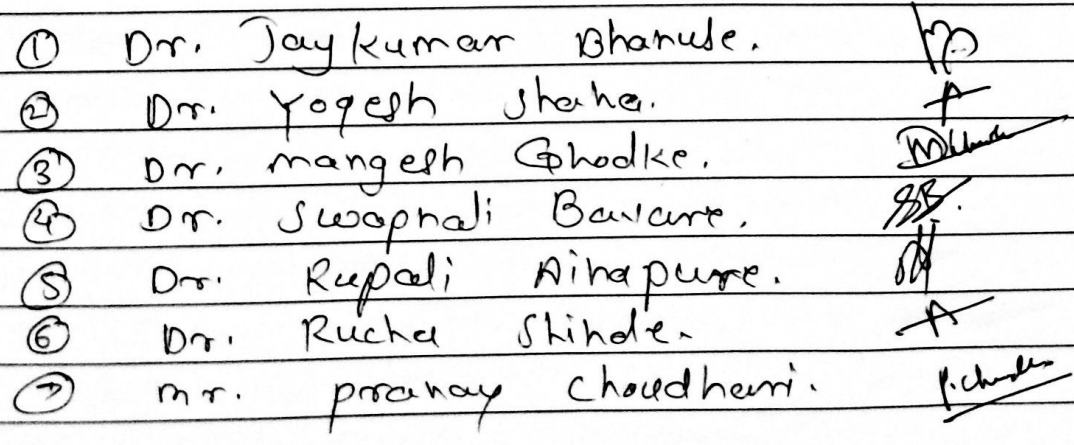 ① Dr. Jaykumar Bharule.
② Dr. Yogesh Shaha. A
③ Dr. Mangesh Ghodke.
④ Dr. Swapnali Bavare. SB.
⑤ Dr. Rupali Ainapure.
⑥ Dr. Rucha Shinde. A
⑦ mr. pranay Choudhari.